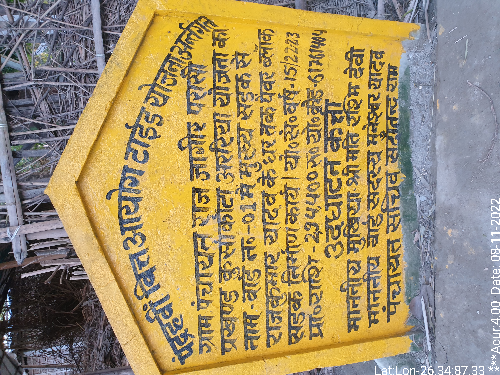 पंद्रहवी वित्त आयोग टाईड योजना अंतर्गत
ग्राम पंचायत राज जागीर परासी
प्रखण्ड कुर्साकांटा अररिया योजना का
नाम वार्ड न०-01 में मुख्य सड़क से
राजकुमार यादव के घर तक पेवर ब्लॉक
सड़क निर्माण कार्य। यो०सं० वर्ष 15/2223
प्रा० राशि 294500 रु० यो० कोड
उदघाटन कर्ता
माननीय मुखिया श्री मति रश्मि देवी
माननीय वार्ड सदस्य यादव
पंचायत सचिव राम
Lat Lon-26.34 87.33
***Acur:4.00 Date, 09-11-2022